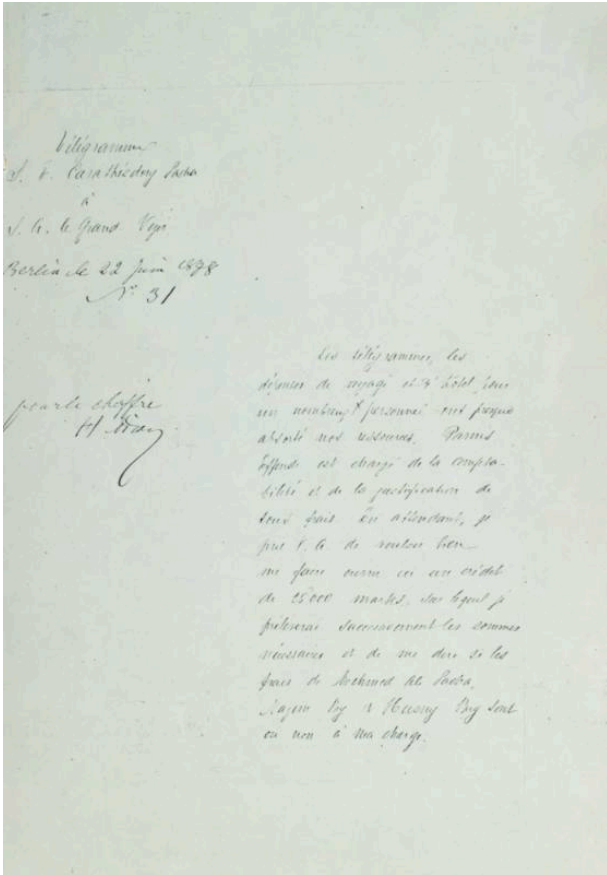 Télégramme
S. E. Carathéodory Pacha
à
S. A. le Grand Vézir
Berlin le 22 Juin 1878
N° 31
pour le chiffre
Les télégrammes, les
dépenses de voyage et d'hôtel pour
un nombreux personnel ont presque
absorbé nos ressources. Parnis
effendi est chargé de la compta-
bilité et de la justification de
tous frais. En attendant, je
prie V. A. de vouloir bien
me faire ouvrir ici un crédit
de 25000 marks, sur lequel je
prélèverai successivement les sommes
nécessaires et de me dire si les
frais de Mehmed Ali Pacha,
Bey & Husny Bey sont
ou non à ma charge.